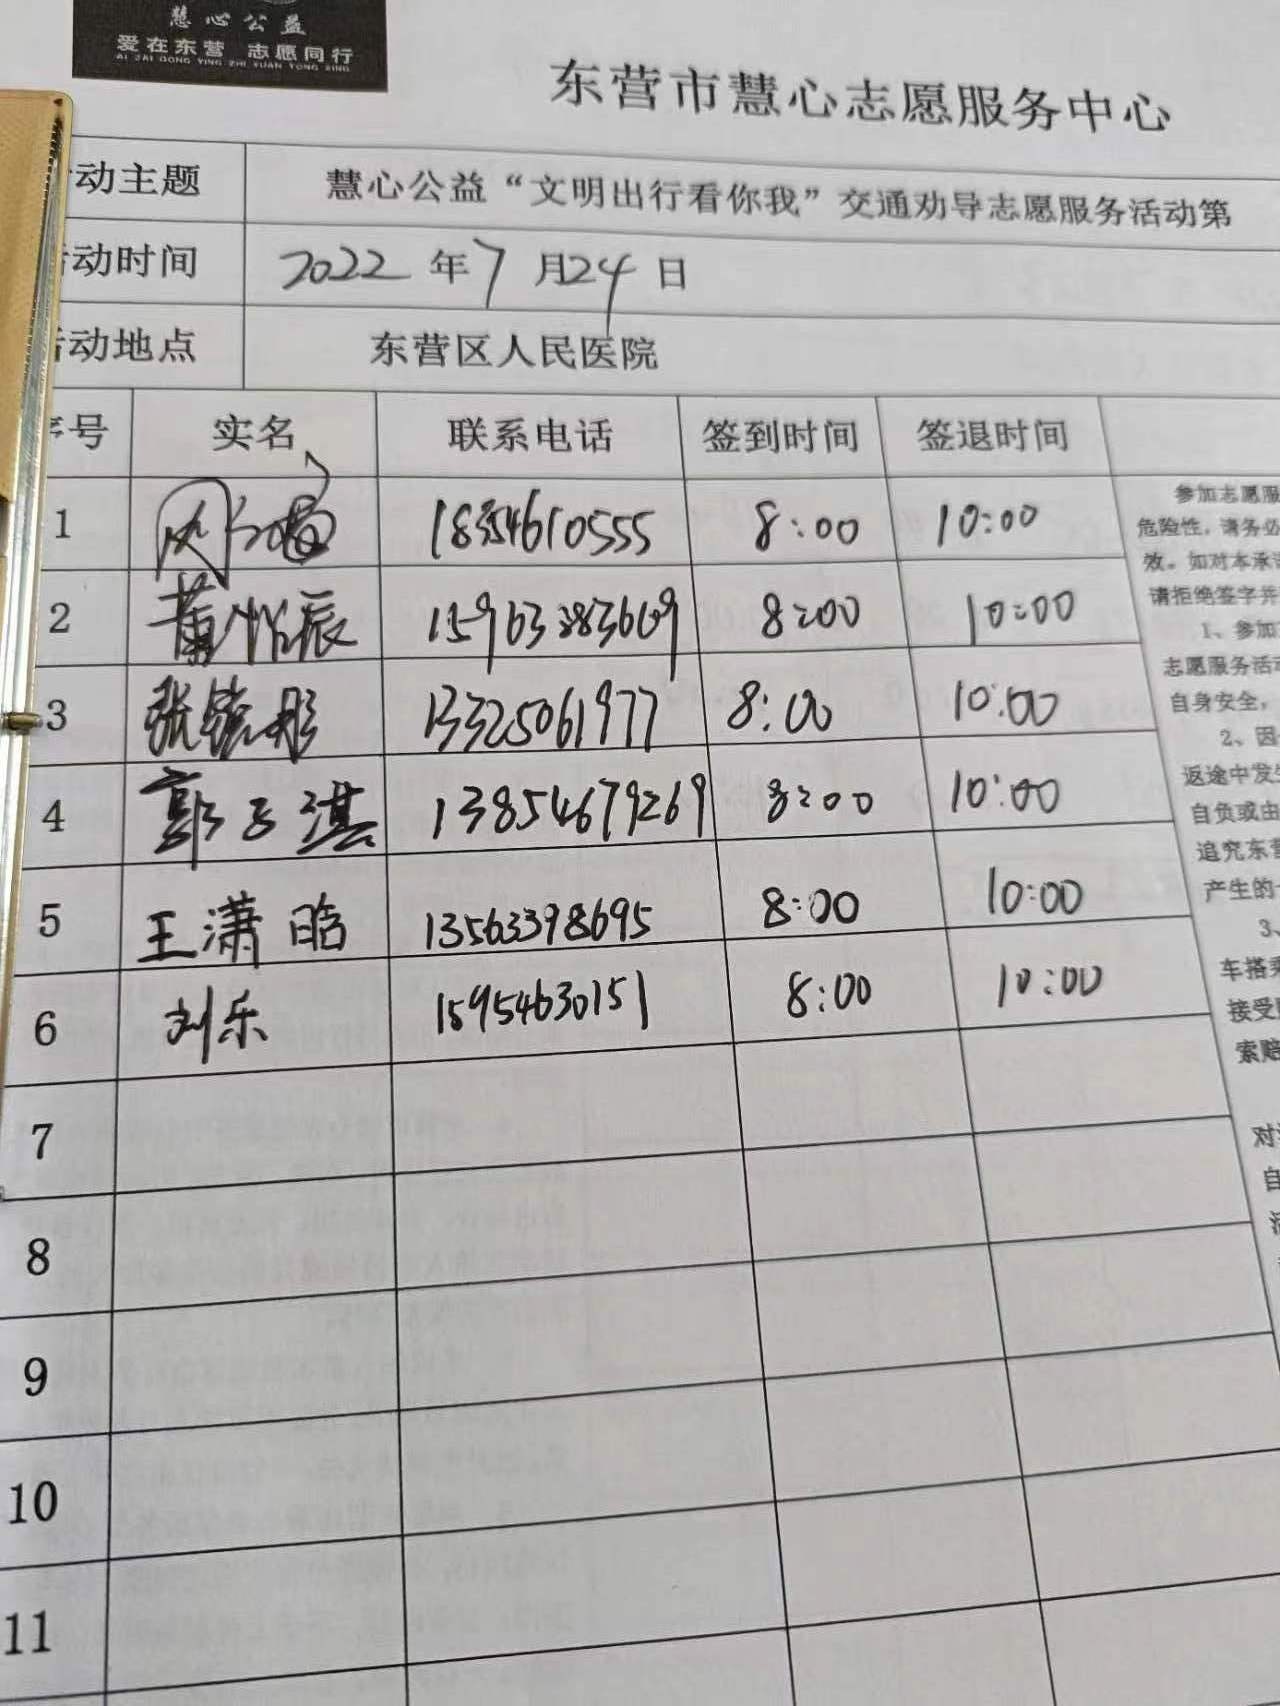 慧心公益
爱在东营 志愿同行
AI ZAI DONG YING ZHI YUAN TONG XING
东营市慧心志愿服务中心
动主题 慧心公益“文明出行看你我”交通劝导志愿服务活动第
动时间 2022年7月24日
动地点 东营区人民医院
序号 实名 联系电话 签到时间 签退时间
1 18354610555 8:00 10:00
2 董怡辰 8:00 10:00
3 张 彤 13325061977 8:00 10:00
4 郭子淇 13854679269 8:00 10:00
5 王潇晗 13563398695 8:00 10:00
6 刘乐 15954630151 8:00 10:00
7
8
9
10
11
参加志愿服
危险性，请务必
效。如对本承诺
请拒绝签字并
1、参加
志愿服务活动
自身安全，
2、因
返途中发生
自负或由
追究东营
产生的一
3、
车搭乘
接受
索赔
对
自